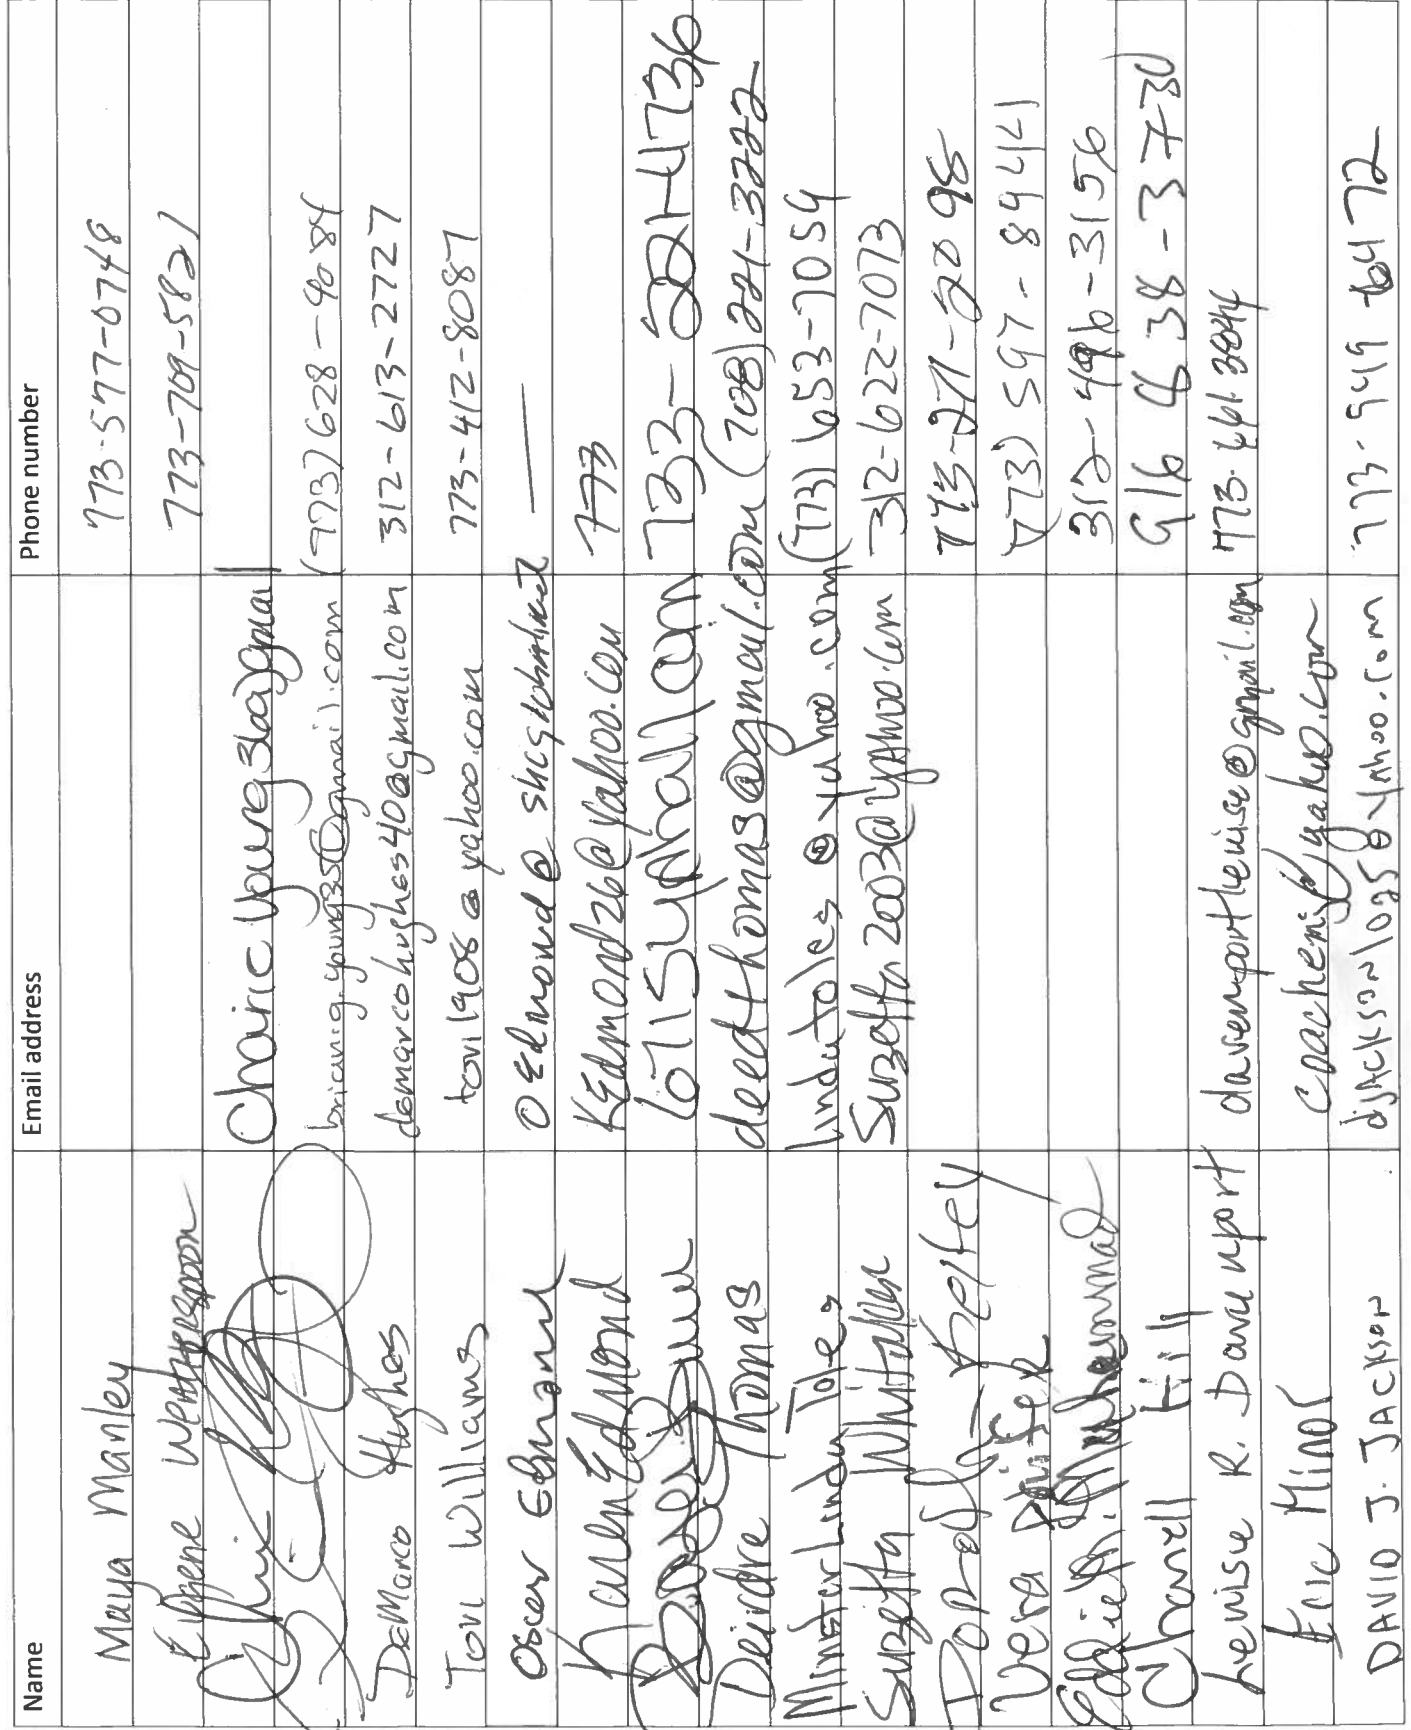 Name Email address Phone number
Maya Manley 773-577-0748
Eugene Witherspoon 773-709-5821
charicyoung36@gmail
brian.g.young35@gmail.com (773) 628-4684
DeMarco Hughes demarcohughes40@gmail.com 312-613-2727
Tori Williams tori1908@yahoo.com 773-412-8087
Oscar Edmond OEdmond@ —
Karen Edmond KEdmond26@yahoo.com 773
733-521-4736
Deirdre Thomas deedthomas@gmail.com (708) 221-3222
Minister Linda Toles lindatoles@yahoo.com (773) 653-7059
Suzetta Whitaker Suzetta2003@yahoo.com 312-622-7073
773-271-2098
Vera (773) 597-89441
Eddie Muhammad 312-496-3156
Charell Hill 916 638-3730
Lenise R. Davenport davenportlenise@gmail.com 773.661.3844
Eric Minor
DAVID J. JACKSON djJACKSON1025@yahoo.com 773-949-6472